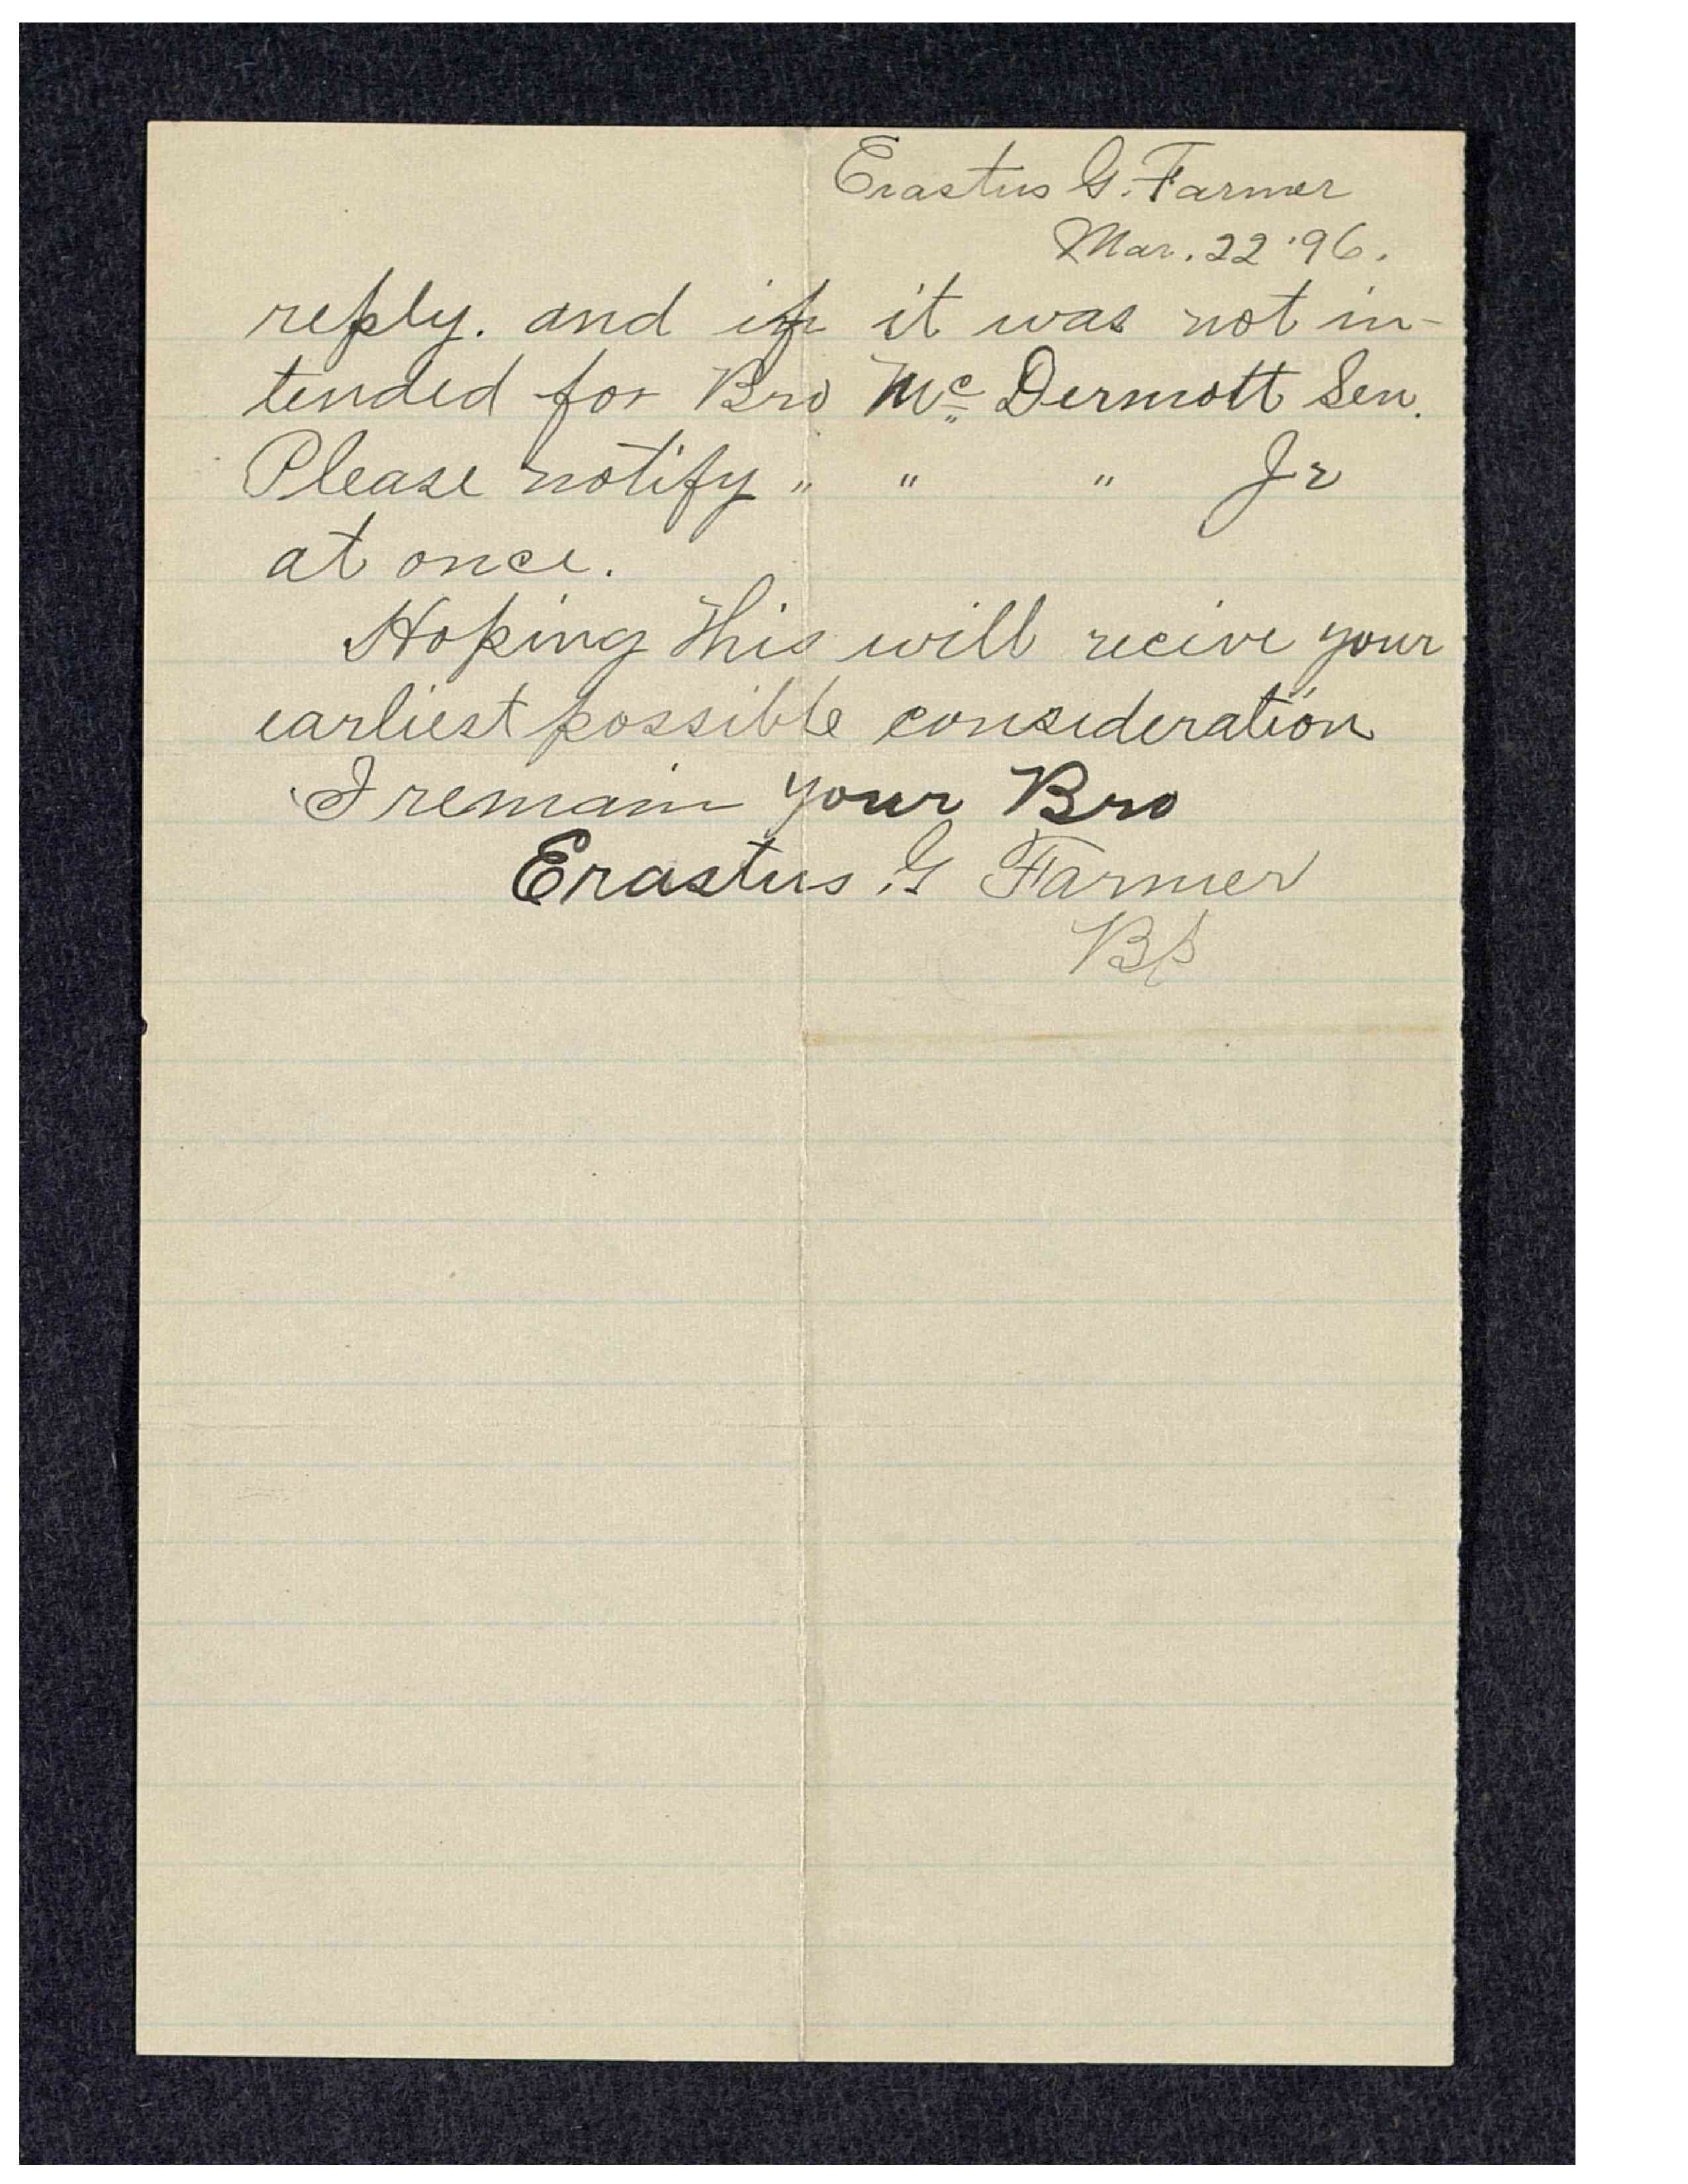 Erastus G. Farmer
Mar. 22 '96.
reply. and if it was not in-
tended for Bro Mc Dermott Sen.
Please notify " " " Jr
at once.
Hoping this will recive your
earliest possible consideration
I remain your Bro
Erastus G Farmer
Bp